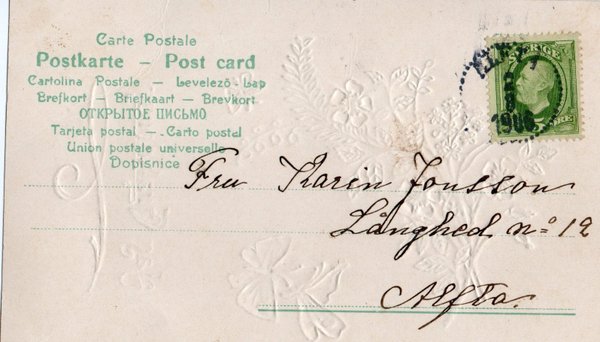 Carte Postale
Postkarte – Post card
Cartolina Postale – Levelező-Lap
Brefkort – Briefkaart – Brevkort
ОТКРЫТОЕ ПИСЬМО
Tarjeta postal – Carto postel
Union postale universelle
Dopisnice
SVERIGE
1906
Fru Karin Jonsson
Långhed no 12
Alfta.